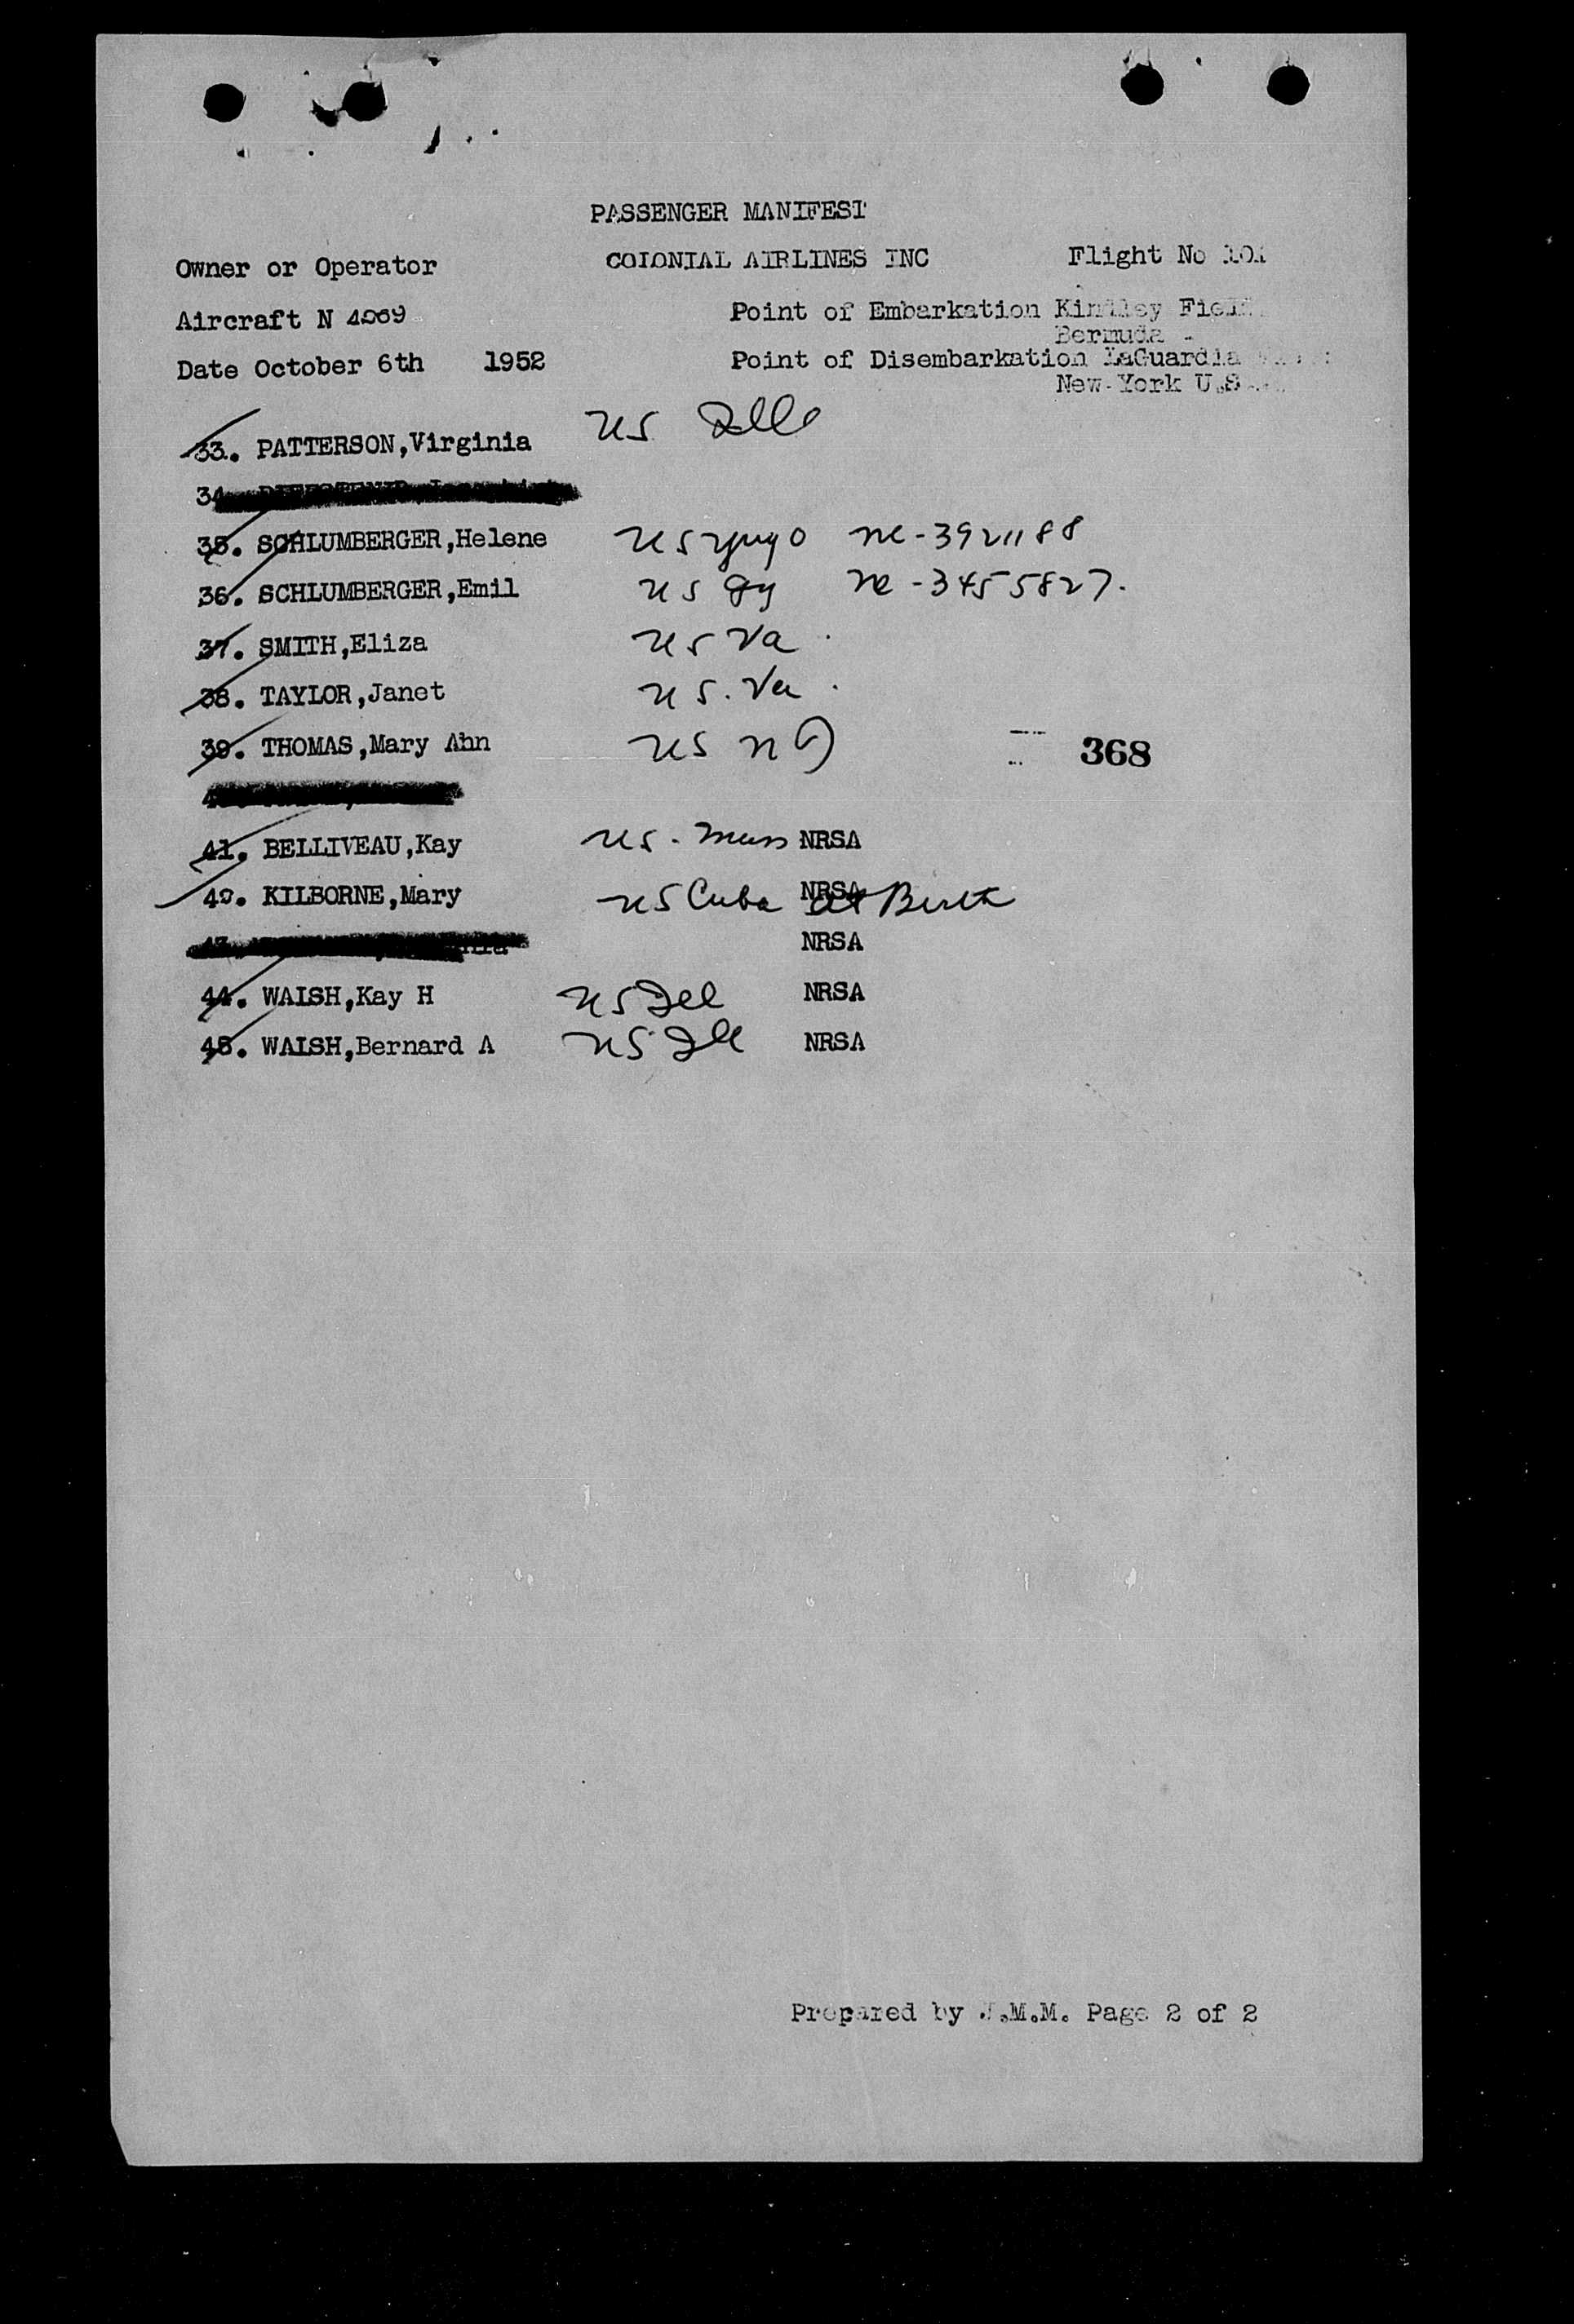 PASSENGER MANIFEST
Owner or Operator COLONIAL AIRLINES INC Flight No 101
Aircraft N Point of Embarkation Kindley Field
Bermuda
Date October 6th 1952 Point of Disembarkation LaGuardia
New York U.S
33. PATTERSON,Virginia US Ill
34
35. SCHLUMBERGER,Helene US yugo nc-3921188
36. SCHLUMBERGER,Emil US gy nc-3455827.
37. SMITH,Eliza US Va.
38. TAYLOR,Janet US. Va.
39. THOMAS,Mary Ahn US NJ 368
41. BELLIVEAU,Kay US. Mass NRSA
42. KILBORNE,Mary US Cuba NRSA at Birth
NRSA
44. WALSH,Kay H US Ill NRSA
45. WALSH,Bernard A US Ill NRSA
Prepared by J.M.M. Page 2 of 2